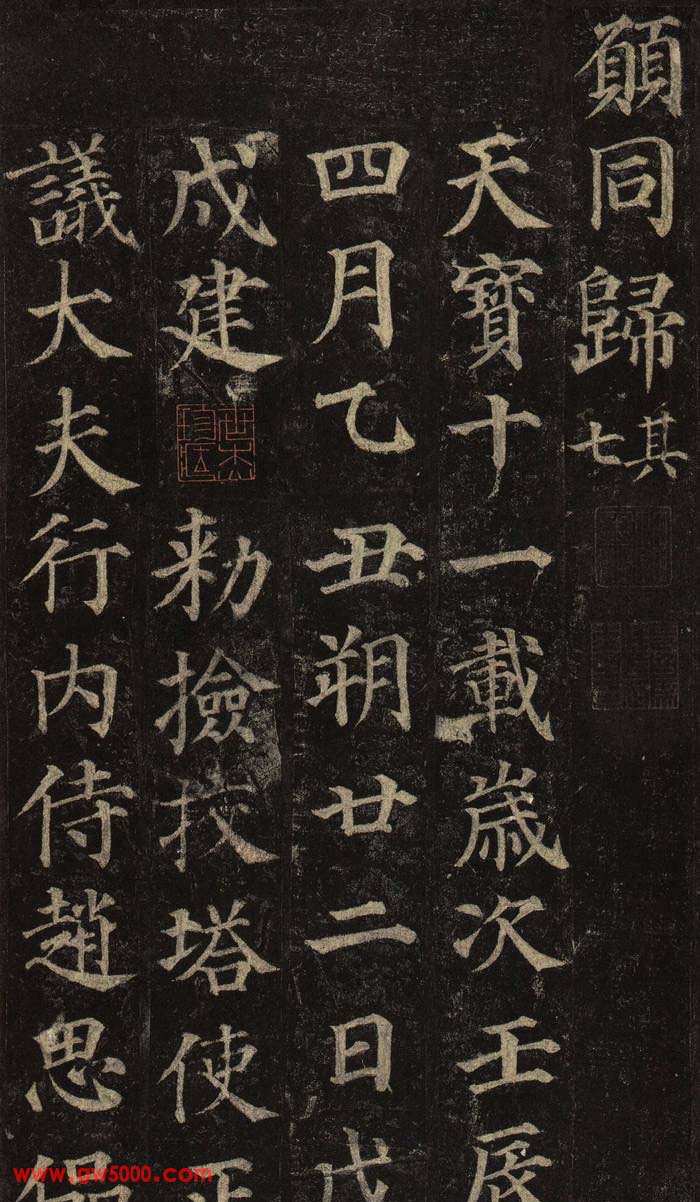 願同歸其七
天寶十一載歲次壬辰
四月乙丑朔廿二日戊
戌建勅撿挍塔使正
議大夫行内侍趙思侃
www.gw5000.com